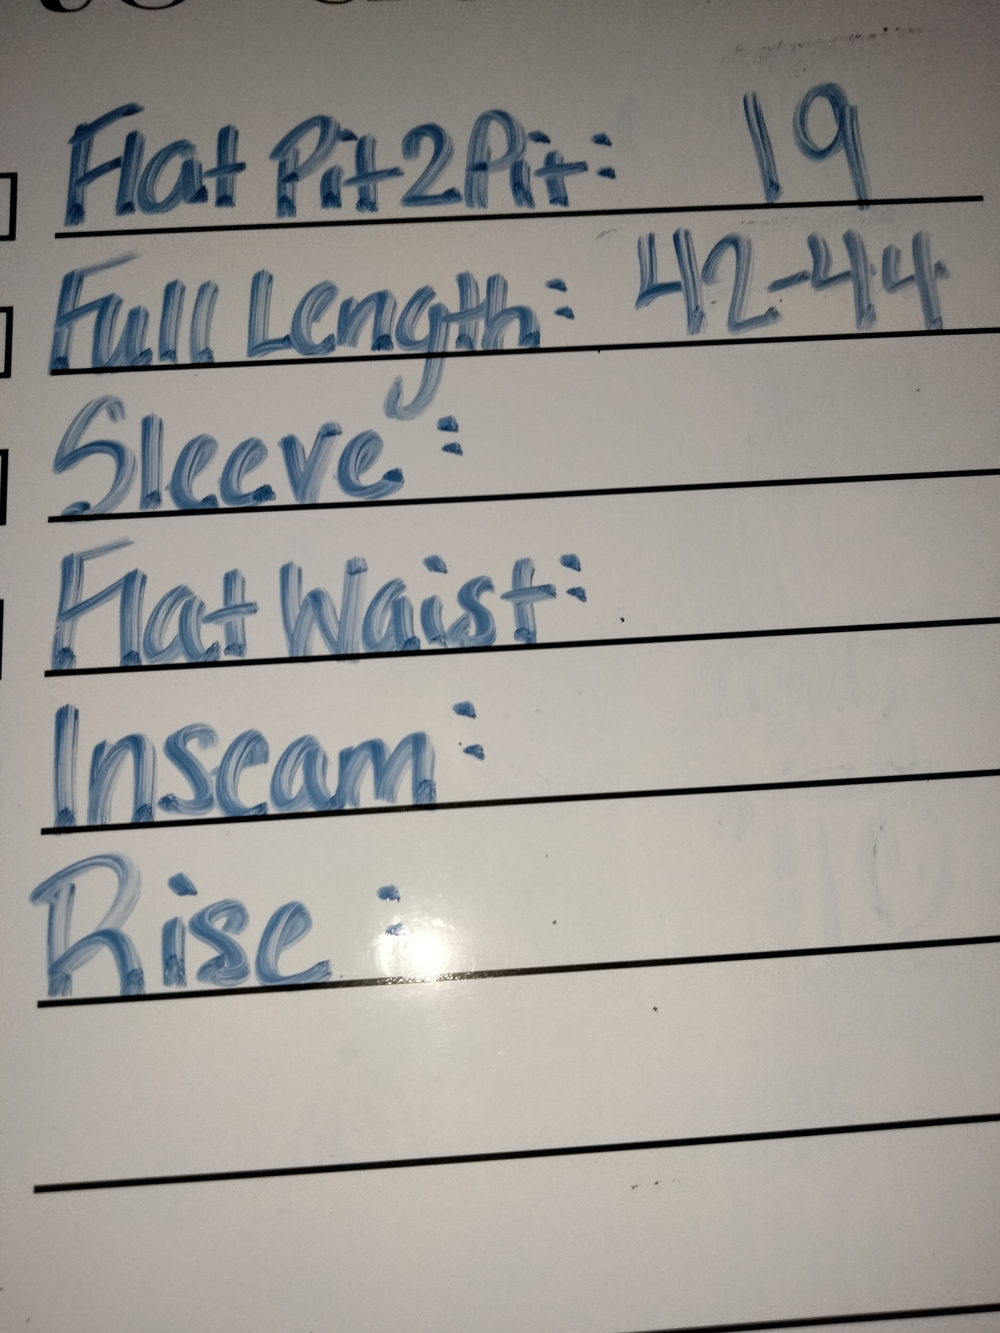 Flat Pit2Pit: 19
Full Length: 42-44
Sleeve:
Flat Waist:
Inseam:
Rise: